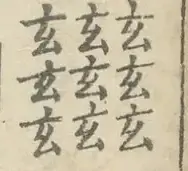 玄玄玄
玄玄玄
玄玄玄